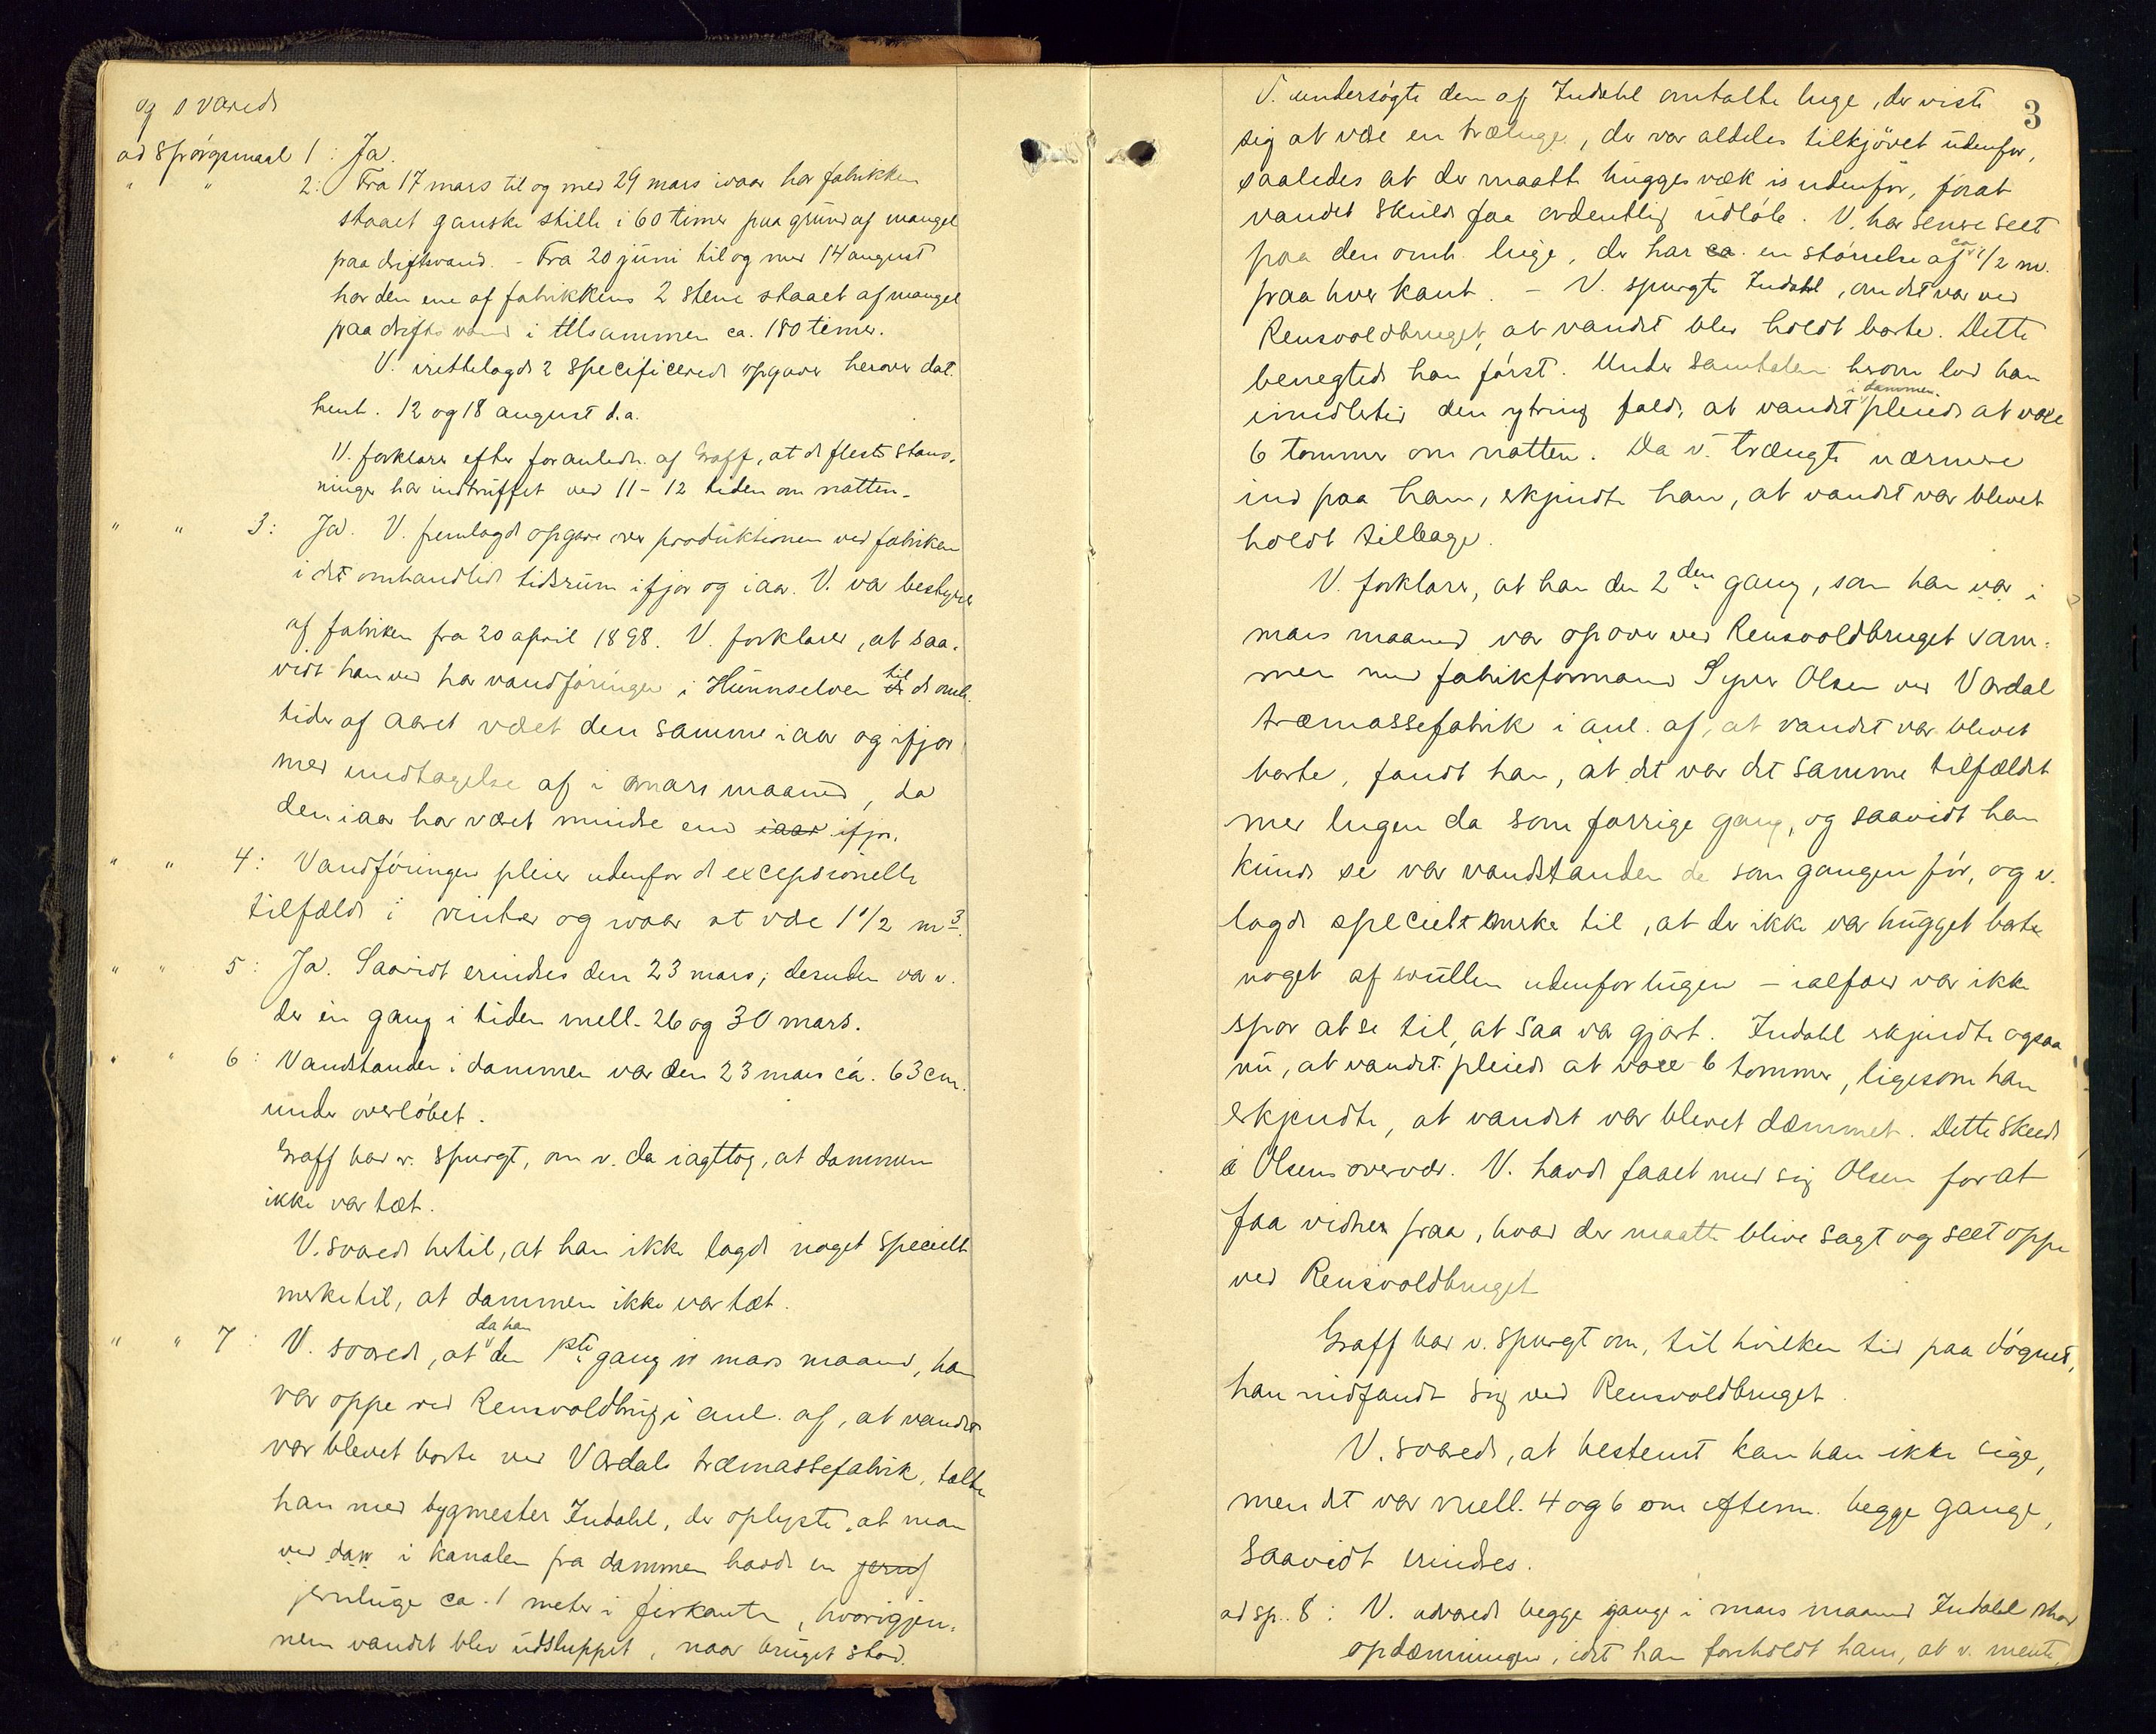 og svarede
ad Spörgsmaal 1: Ja.
" " 2: Fra 17 mars til og med 29 mars ivaar har fabrikken
staaet ganske stille i 60 timer paa grund af mangel
paa driftsvand. - Fra 20 juni til og med 14 august
har den ene af fabrikkens 2 stene staaet af mangel
paa driftsvand i tilsammen ca. 180 timer.
V. irettelagde 2 specificerede opgaver herover dat.
henh. 12 og 18 august d.a.
V. forklarer efter foranledn. af Graff, at de fleste stans-
ninger har indtruffet ved 11-12 tiden om natten.
" " 3: Ja. V. fremlagde opgave over produktionen ved fabriken
i det omhandlede tidsrum ifjor og iaar. V. var bestyrer
af fabriken fra 20 april 1898. V. forklarer, at saa-
vidt han ved har vandföringen i Hunnselven til de omh.
tider af aaret været den samme iaar og ifjor
med undtagelse af i mars maaned, da
den iaar har været mindre end iaar ifjor.
" " 4: Vandföringen pleier udenfor de excepsionelle
tilfælde i vinter og ivaar at være 1 1/2 m3.
" " 5: Ja. Saavidt erindres den 23 mars; desuden var v.
der en gang i tiden mell. 26 og 30 mars.
" " 6: Vandstanden i dammen var den 23 mars ca. 63 cm.
under overlöbet.
Graff bad v. spurgt, om v. da iagttog, at dammen
ikke var tæt.
V. svarede hertil, at han ikke lagde noget specielt
merke til, at dammen ikke var tæt.
" " 7: V. svarede, at da han den 1ste gang i mars maaned, han
var oppe ved Rensvoldbrug i anl. af, at vandet
var blevet borte ved Vardals træmassefabrik, talte
han med bygmester Indahl, der oplyste, at man
ved dam i kanalen fra dammen havde en jernl
jernluge ca. 1 meter i firkant, hvorigjen-
nem vandet blev udsluppet, naar bruget stod.
3
V. undersögte den af Indahl omtalte luge, der viste
sig at være en træluge, der var aldeles tilkjövet udenfor,
saaledes at der maatte hugges væk is udenfor, forat
vandet skulde faa ordentlig udlöb. V. har senere seet
paa den omh. luge, der har ca. en störrelse af ca 1/2 m.
paa hver kant. - V. spurgte Indahl, om det var ved
Rensvoldbruget, at vandet blev holdt borte. Dette
benegtede han först. Under samtalen herom lod han
imidlertid den ytring falde, at vandet i dammen pleiede at voxe
6 tommer om natten. Da v. trængte nærmere
ind paa ham, erkjendte han, at vandet var blevet
holdt tilbage.
V. forklarer, at han den 2den gang, som han var i
mars maaned var opover ved Rensvoldbruget sam-
men med fabrikformand Syver Olsen ved Vardal
træmassefabrik i anl. af, at vandet var blevet
borte, fandt han, at det var det samme tilfældet
med lugen da som forrige gang, og saavidt han
kunde se var vandstanden da som gangen för, og v.
lagde specielt merke til, at der ikke var hugget borte
noget af svullen udenfor lugen - ialfald var ikke
spor at se til, at saa var gjort. Indahl erkjendte ogsaa
nu, at vandet pleiede at voxe 6 tommer, ligesom han
erkjendte, at vandet var blevet dæmmet. Dette skede
i Olsens overvær. V. havde faaet med sig Olsen for at
faa vidner paa, hvad der maatte blive sagt og seet oppe
ved Rensvoldbruget
Graff bad v. spurgt om, til hvilken tid paa dögnet,
han indfandt sig ved Rensvoldbruget.
V. svarede, at bestemt kan han ikke sige,
men det var mell. 4 og 6 om efterm. begge gange,
saavidt erindres.
ad sp. 8: V. advarede begge gange i mars maaned Indahl mod
opdæmningen, idet han foreholdt ham, at v. mente,